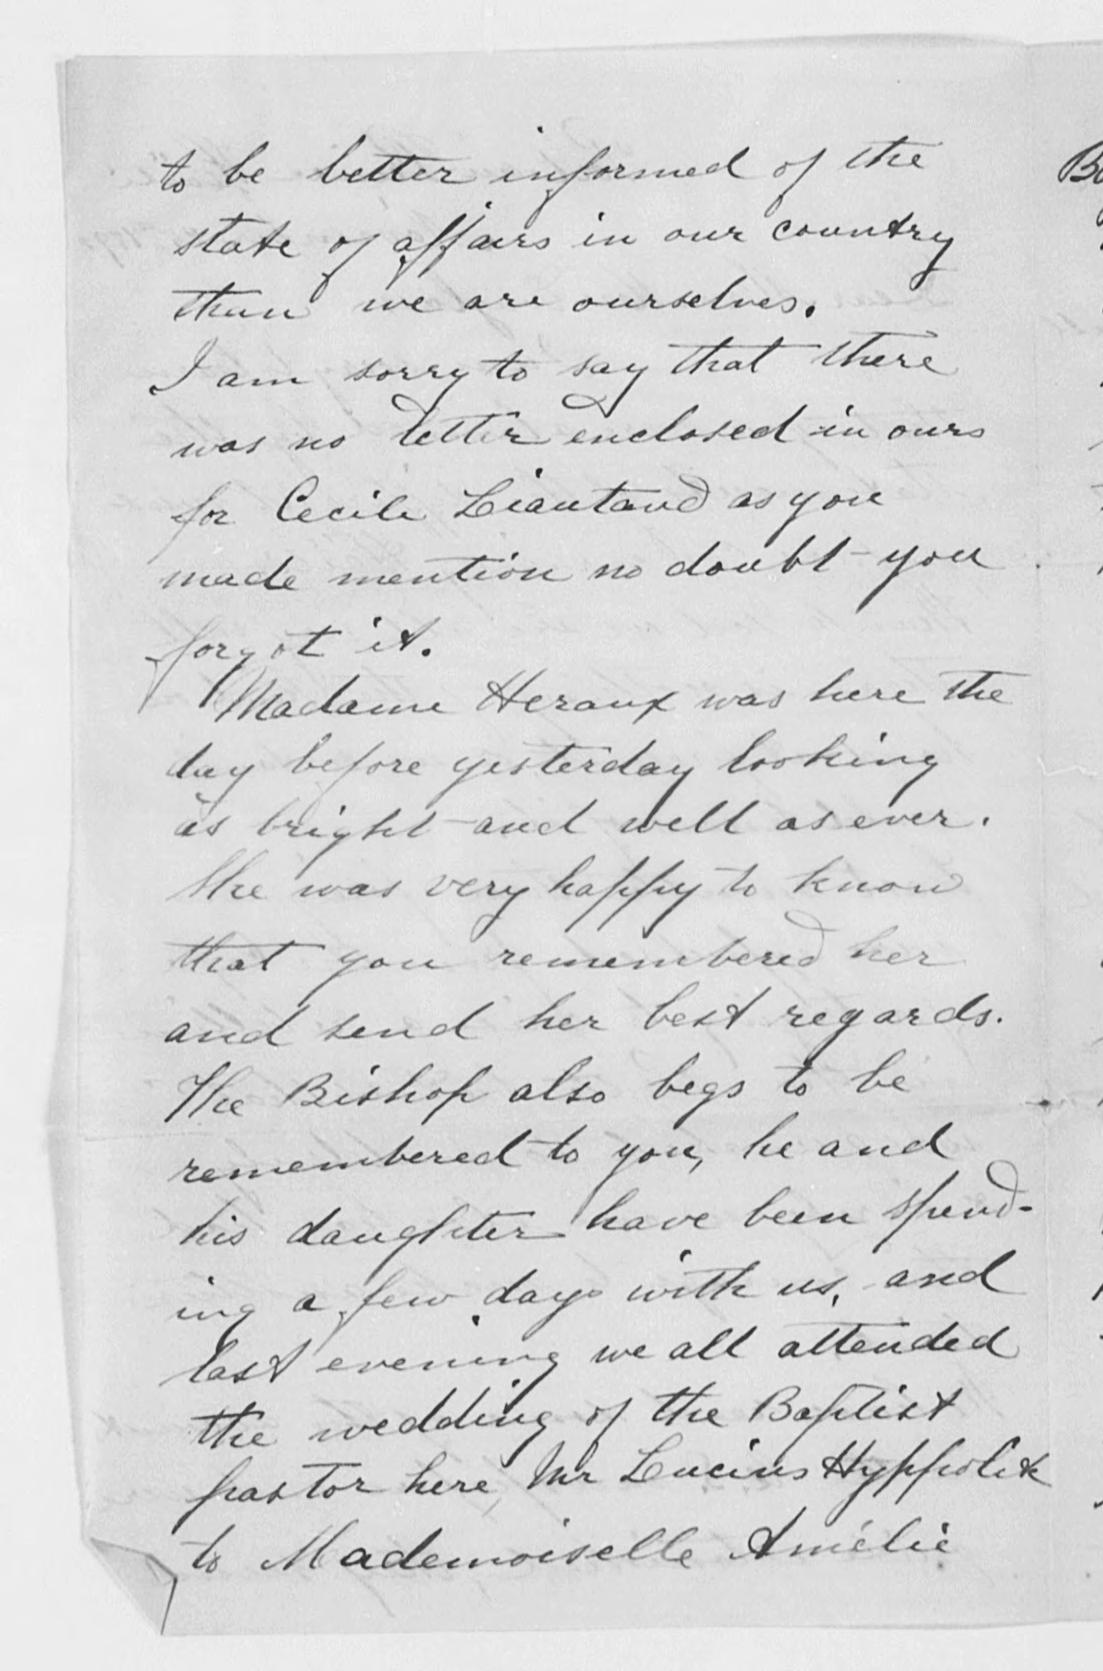 to be better informed of the
state of affairs in our country
than we are ourselves.
I am sorry to say that there
was no letter enclosed in ours
for Cecile Liautaud as you
made mention no doubt you
forgot it.
Madame Heraux was here the
day before yesterday looking
as bright and well as ever.
She was very happy to know
that you remembered her
and send her best regards.
The Bishop also begs to be
remembered to you, he and
his daughter have been spend-
ing a few days with us, and
last evening we all attended
the wedding of the Baptist
pastor here, Mr Lucius Hyppolite
to Mademoiselle Amélie